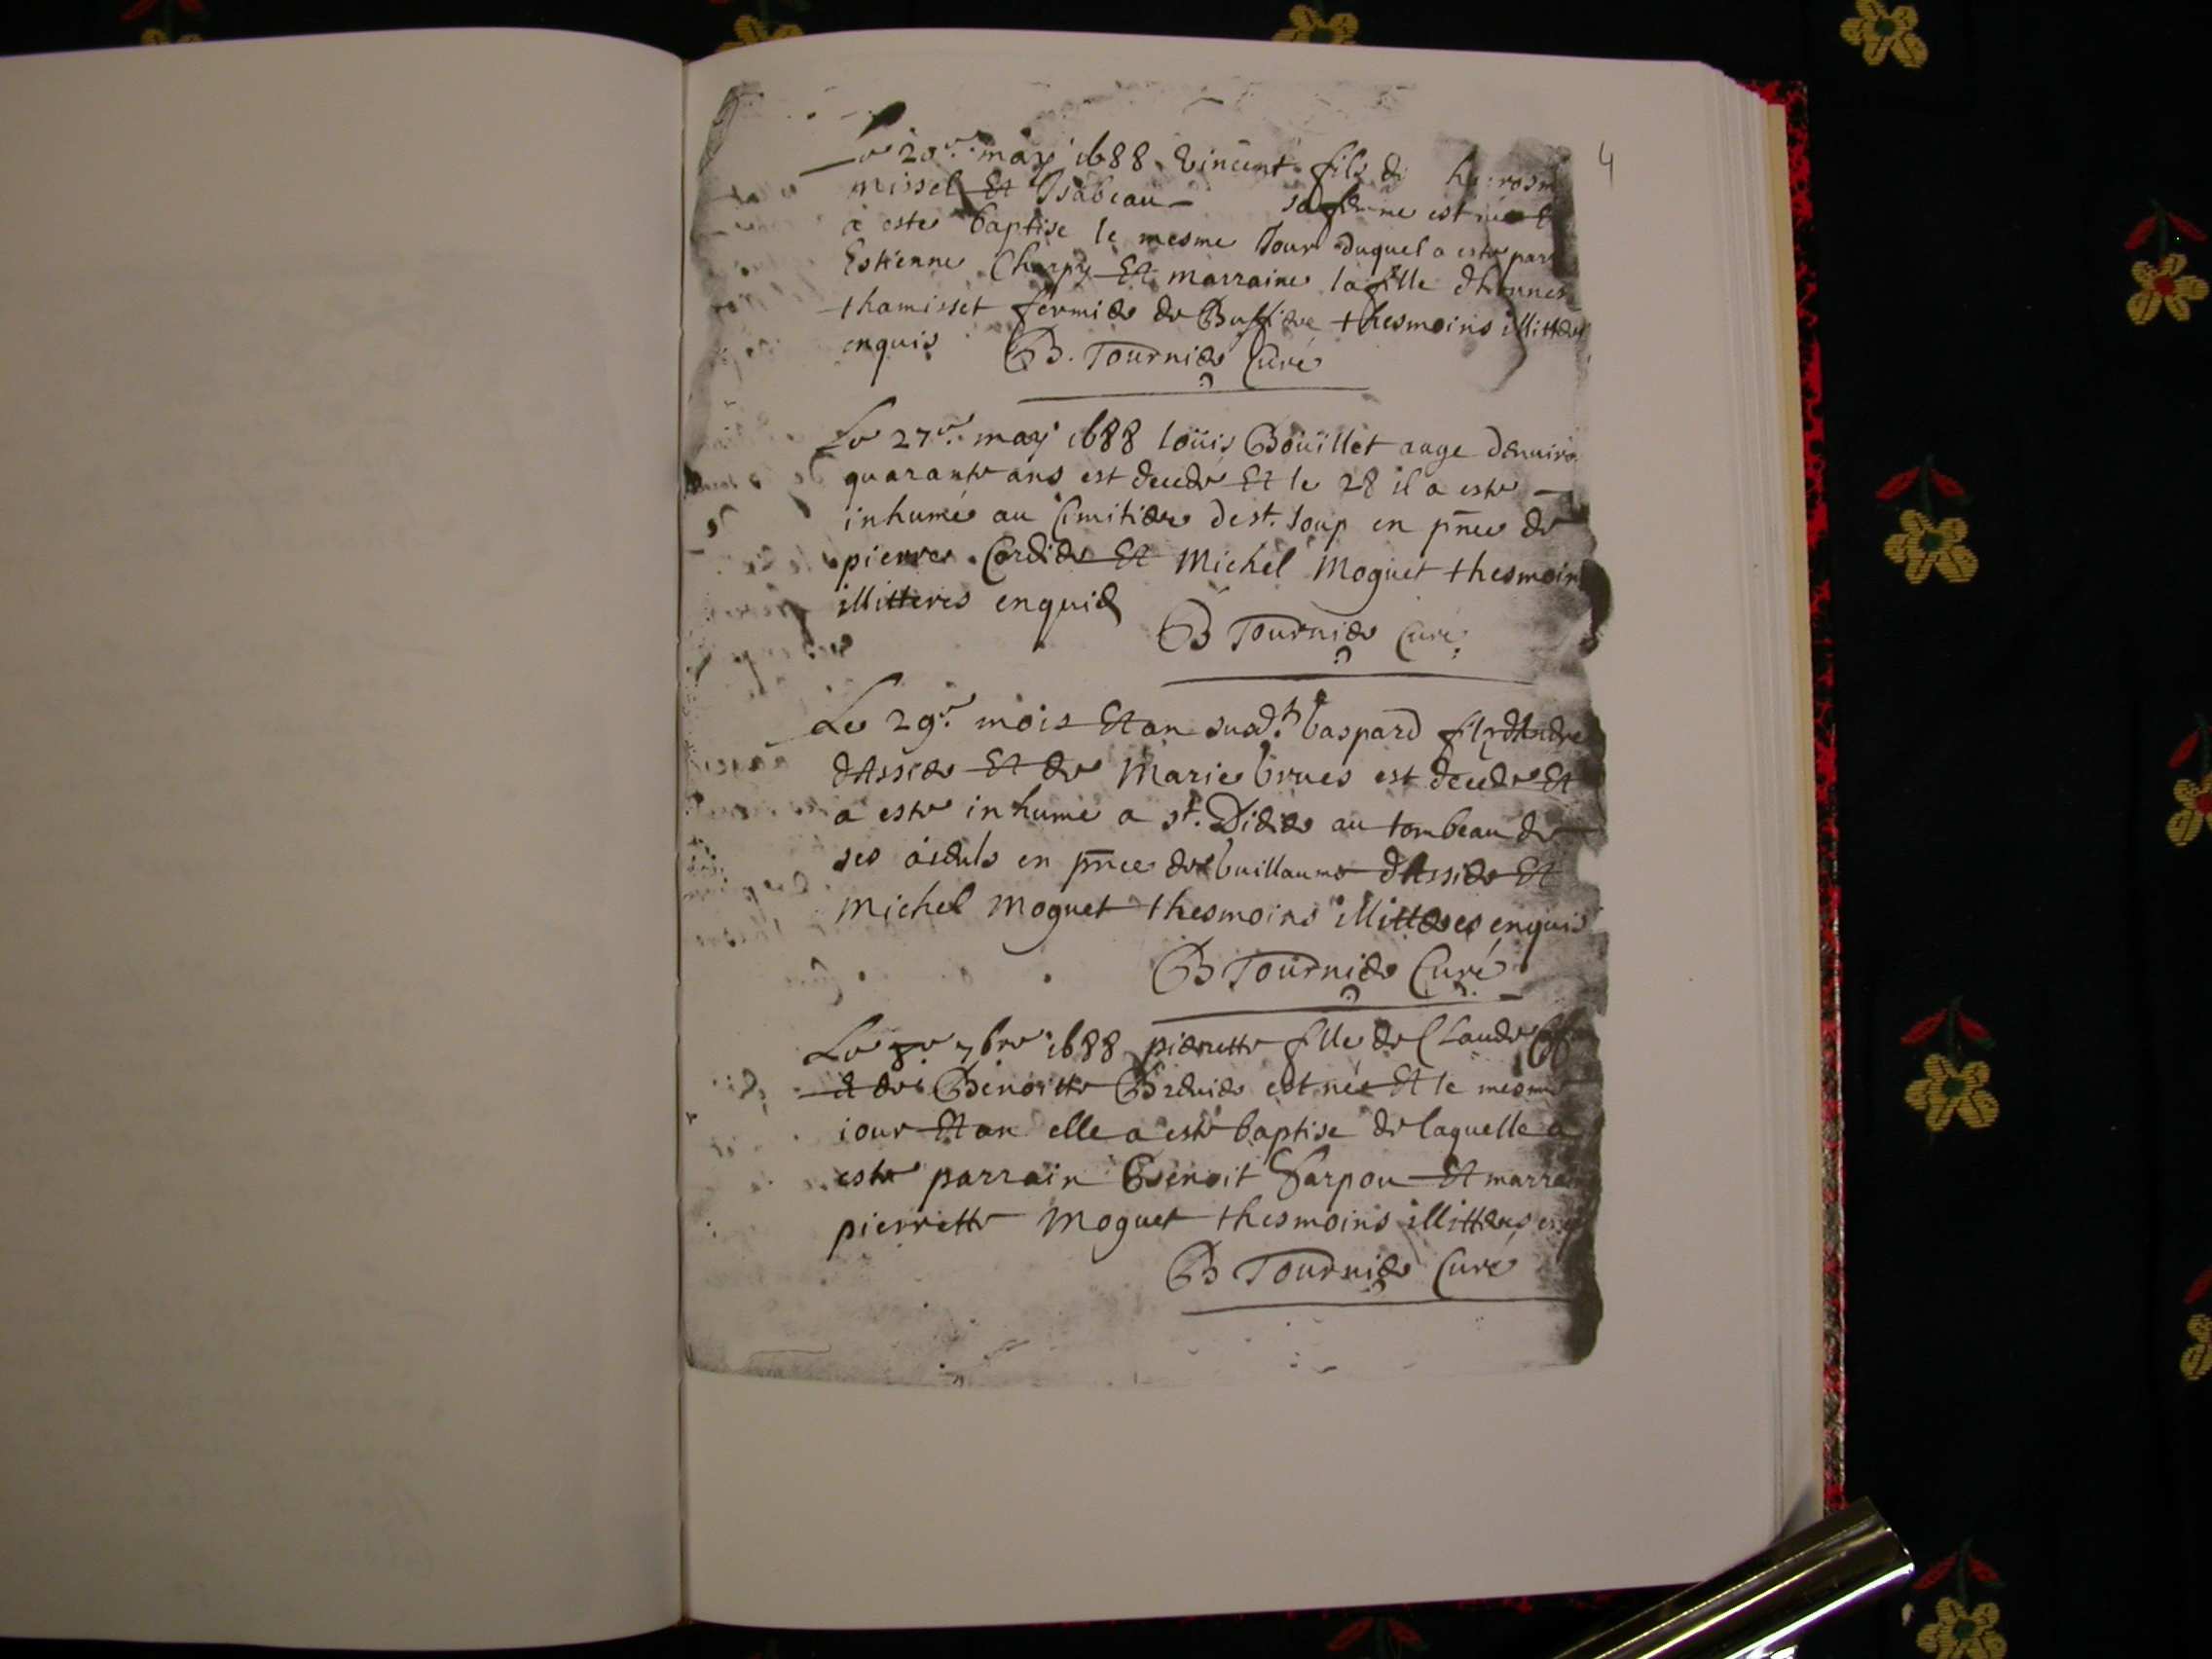 4
Le 20e may 1688 Vincent fils de hierosm
missel Et Isabeau – sa femme est né Et
a este baptise le mesme Jour duquel a este par
Estienne Charpy Et marraine la fille
thamisset fermier de Bussiere thesmoins illitteres
enquis B. Tournier Curé
Le 27e may 1688 loüis Boüillet aage denuiro
quarante ans est decede Et le 28 il a este –
inhumé au Cimitiere de st. loup en pñce de
pierre Cordier Et Michel Moguet thesmoins
illitteres enquis
B Tournier Curé
Le 29e mois Et an susdt gaspard filz dAndre
dAssier Et de Marie grues est decede Et
a este inhume a st. Didier au tombeau de
ses aieuls en pñce de guillaume dAssier Et
Michel Moguet thesmoins illitteres enquis
B Tournier Curé
Le 8e 7bre 1688 pierrette fille de Claude
Et de Benoitte Breuier est née Et le mesme
iour Et an elle a este baptise de laquelle a
este parrain Benoit Sarpou Et marra
pierrette Moguet thesmoins illitteres enq
B Tournier Curé